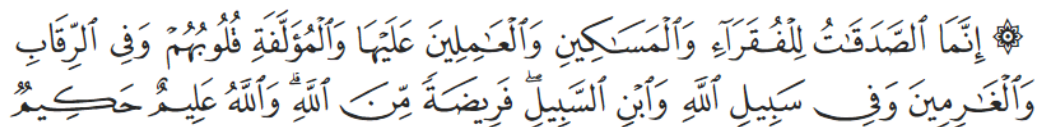 ۞ إِنَّمَا ٱلصَّدَقَـٰتُ لِلْفُقَرَآءِ وَٱلْمَسَـٰكِينِ وَٱلْعَـٰمِلِينَ عَلَيْهَا وَٱلْمُؤَلَّفَةِ قُلُوبُهُمْ وَفِى ٱلرِّقَابِ
وَٱلْغَـٰرِمِينَ وَفِى سَبِيلِ ٱللَّهِ وَٱبْنِ ٱلسَّبِيلِ ۖ فَرِيضَةً مِّنَ ٱللَّهِ ۗ وَٱللَّهُ عَلِيمٌ حَكِيمٌ